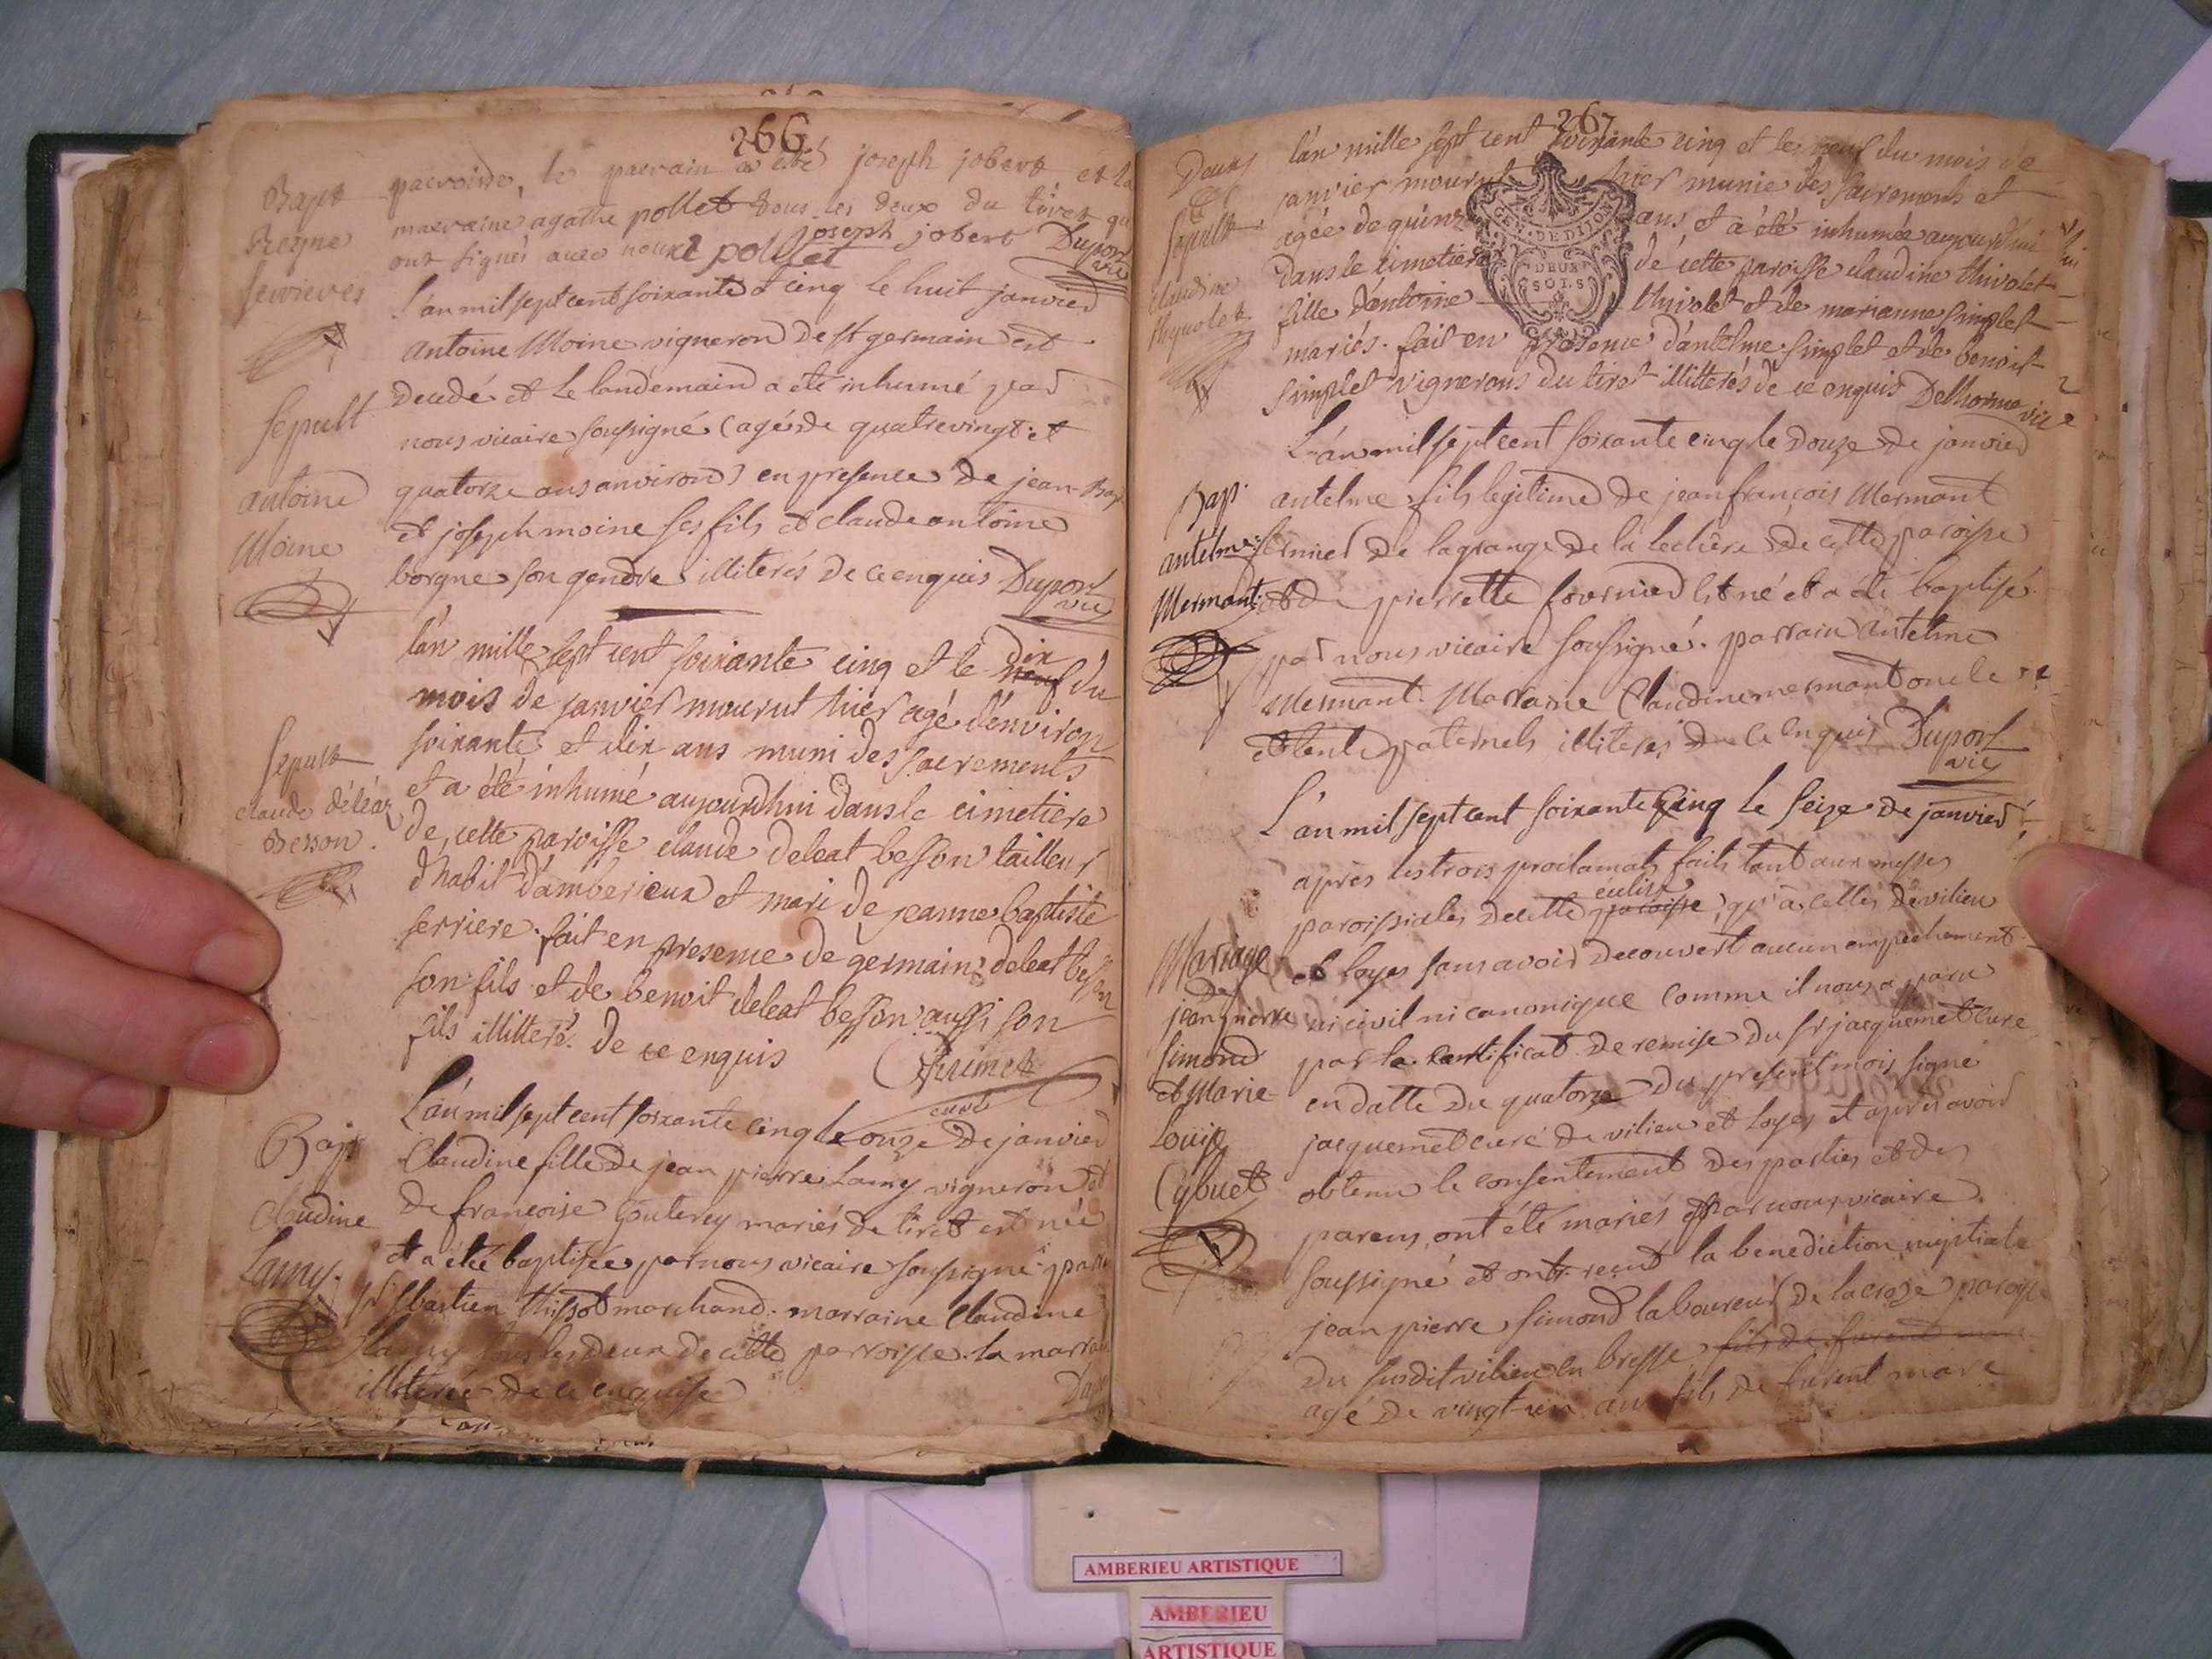 266
Bapt
Reyne
servieves
parroisse, le parrain a été joseph jobert et la
marraine agathe pollet tous les deux du tiret qui
ont signés avec nous a pollet joseph jobert Duport
vic
Sepult
antoine
Moine
L'an mil sept cent soixante et cinq le huit janvier
antoine Moine vigneron de st germain est
decedé et le landemain a eté inhumé par
nous vicaire soussigné (agé de quatrevingt et
quatorze ans anviron) en presence de jean-Bapt
et joseph moine ses fils et claude antoine
borgne son gendre illiterés de ce enquis Duport
vic
Sepult
claude déléaz
Besson.
l'an mille sept cent soixante cinq et le neuf dix du
mois de janvier mourut hier agé d'environ
soixante et dix ans muni des sacrements
et a été inhumé aujourdhui dans le cimetiere
de cette paroisse claude deleat besson tailleur
d'habit d'amberieux et mari de jeanne baptiste
ferriere. fait en presence de germain deleat besson
son fils et de benoit deleat besson aussi son
fils illitteré. de ce enquis
curé
Bapt
Claudine
Lamy.
L'an mil sept cent soixante cinq le onze de janvier
Claudine fille de jean pierre Lamy vigneron et
de francoise mariés de tiret est née
et a eté baptisée par nous vicaire soussigné
sr sbastien thissot marchand. marraine Claudine
Lamy tous les deux de cette parroisse. la marraine
illiterée de ce enquise
267
Deux
Sepult
claudine
thyvolet
l'an mille sept cent soixante cinq et le neuf du mois de
janvier mourut hier munie des sacrements et
agée de quinze ans et a été inhumée aujourdhui
dans le cimetiere de cette paroisse claudine thivolet
fille d'antoine thivolet et de marianne simplet
mariés. fait en presence d'antelme simplet et de benoit
simplet vignerons du tiret illitterés de ce enquis Delhorme
vic
GEN. DE DIJON
DEUX
SOLS
Bap.
antelme
Mermant
L'an mil sept cent soixante cinq le douze de janvier
antelme fils legitime de jean françois Mermant
fermier de la grange de la lechère de cette paroisse
et de pierrette fournier est né et a eté baptisé
par nous vicaire soussigné. parrain antelme
Mermant. Marraine Claudine mermant oncle
et tente paternels illiterés de ce enquis Duport
vic
Mariage
de
jean pierre
Simond
et Marie
Louise
Cybuet
L'an mil sept cent soixante cinq le seize de janvier
après les trois proclamats faits tant aux messes
paroissiales de cette paroisse eglise, qu'à celles de vilieu
et loyes sans avoir decouvert aucun empechement
ni civil ni canonique comme il nous a paru
par le certificat de remise du sr jacquemet cure
en datte du quatorze du present mois signé
jacquemet curé de vilieu et loyes et apres avoir
obtenu le consentement des parties et des
parens, ont été mariés par nous vicaire
soussigné et ont reçut la benediction nuptiale
jean pierre simond laboureur de la croze paroisse
du susdit vilieu en bresse, fils de furent marc
agé de vingt-un ans fils de furent marc
AMBERIEU ARTISTIQUE
AMBERIEU
ARTISTIQUE